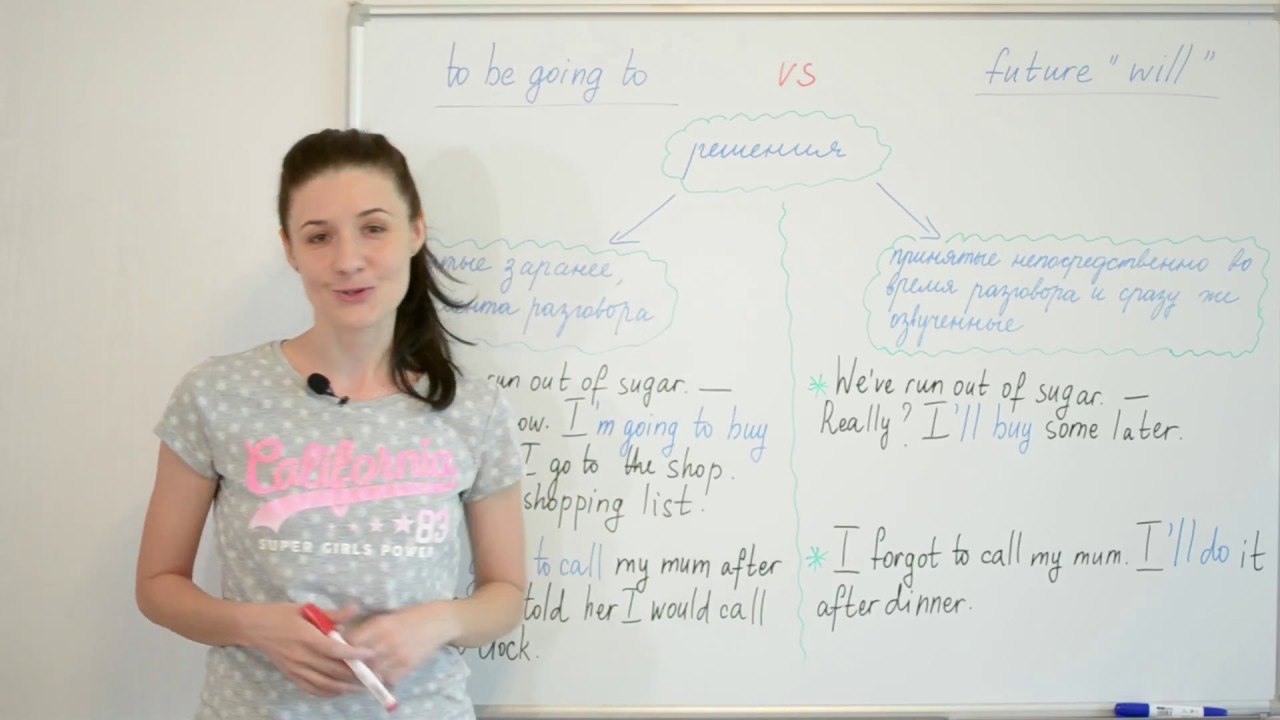 to be going to
vs
future "will"
решения
заранее,
разговора
принятые непосредственно во
время разговора и сразу же
озвученные
run out of sugar. —
I'm going to buy
I go to the shop.
shopping list!
to call my mum after
told her I would call
* We've run out of sugar. —
Really? I'll buy some later.
* I forgot to call my mum. I'll do it
after dinner.
California
83
SUPER GIRLS POWER